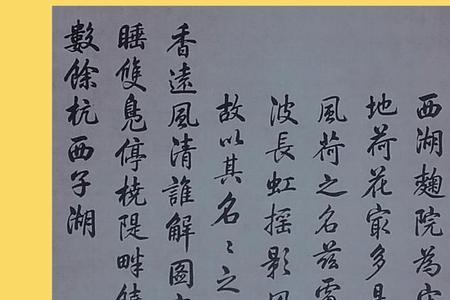 西湖麯院為宋
地荷花冣多是
風荷之名兹
波長虹摇影風
故以其名々之
香遠風清誰解圖
睡雙鳧停橈隄畔饒
數餘杭西子湖